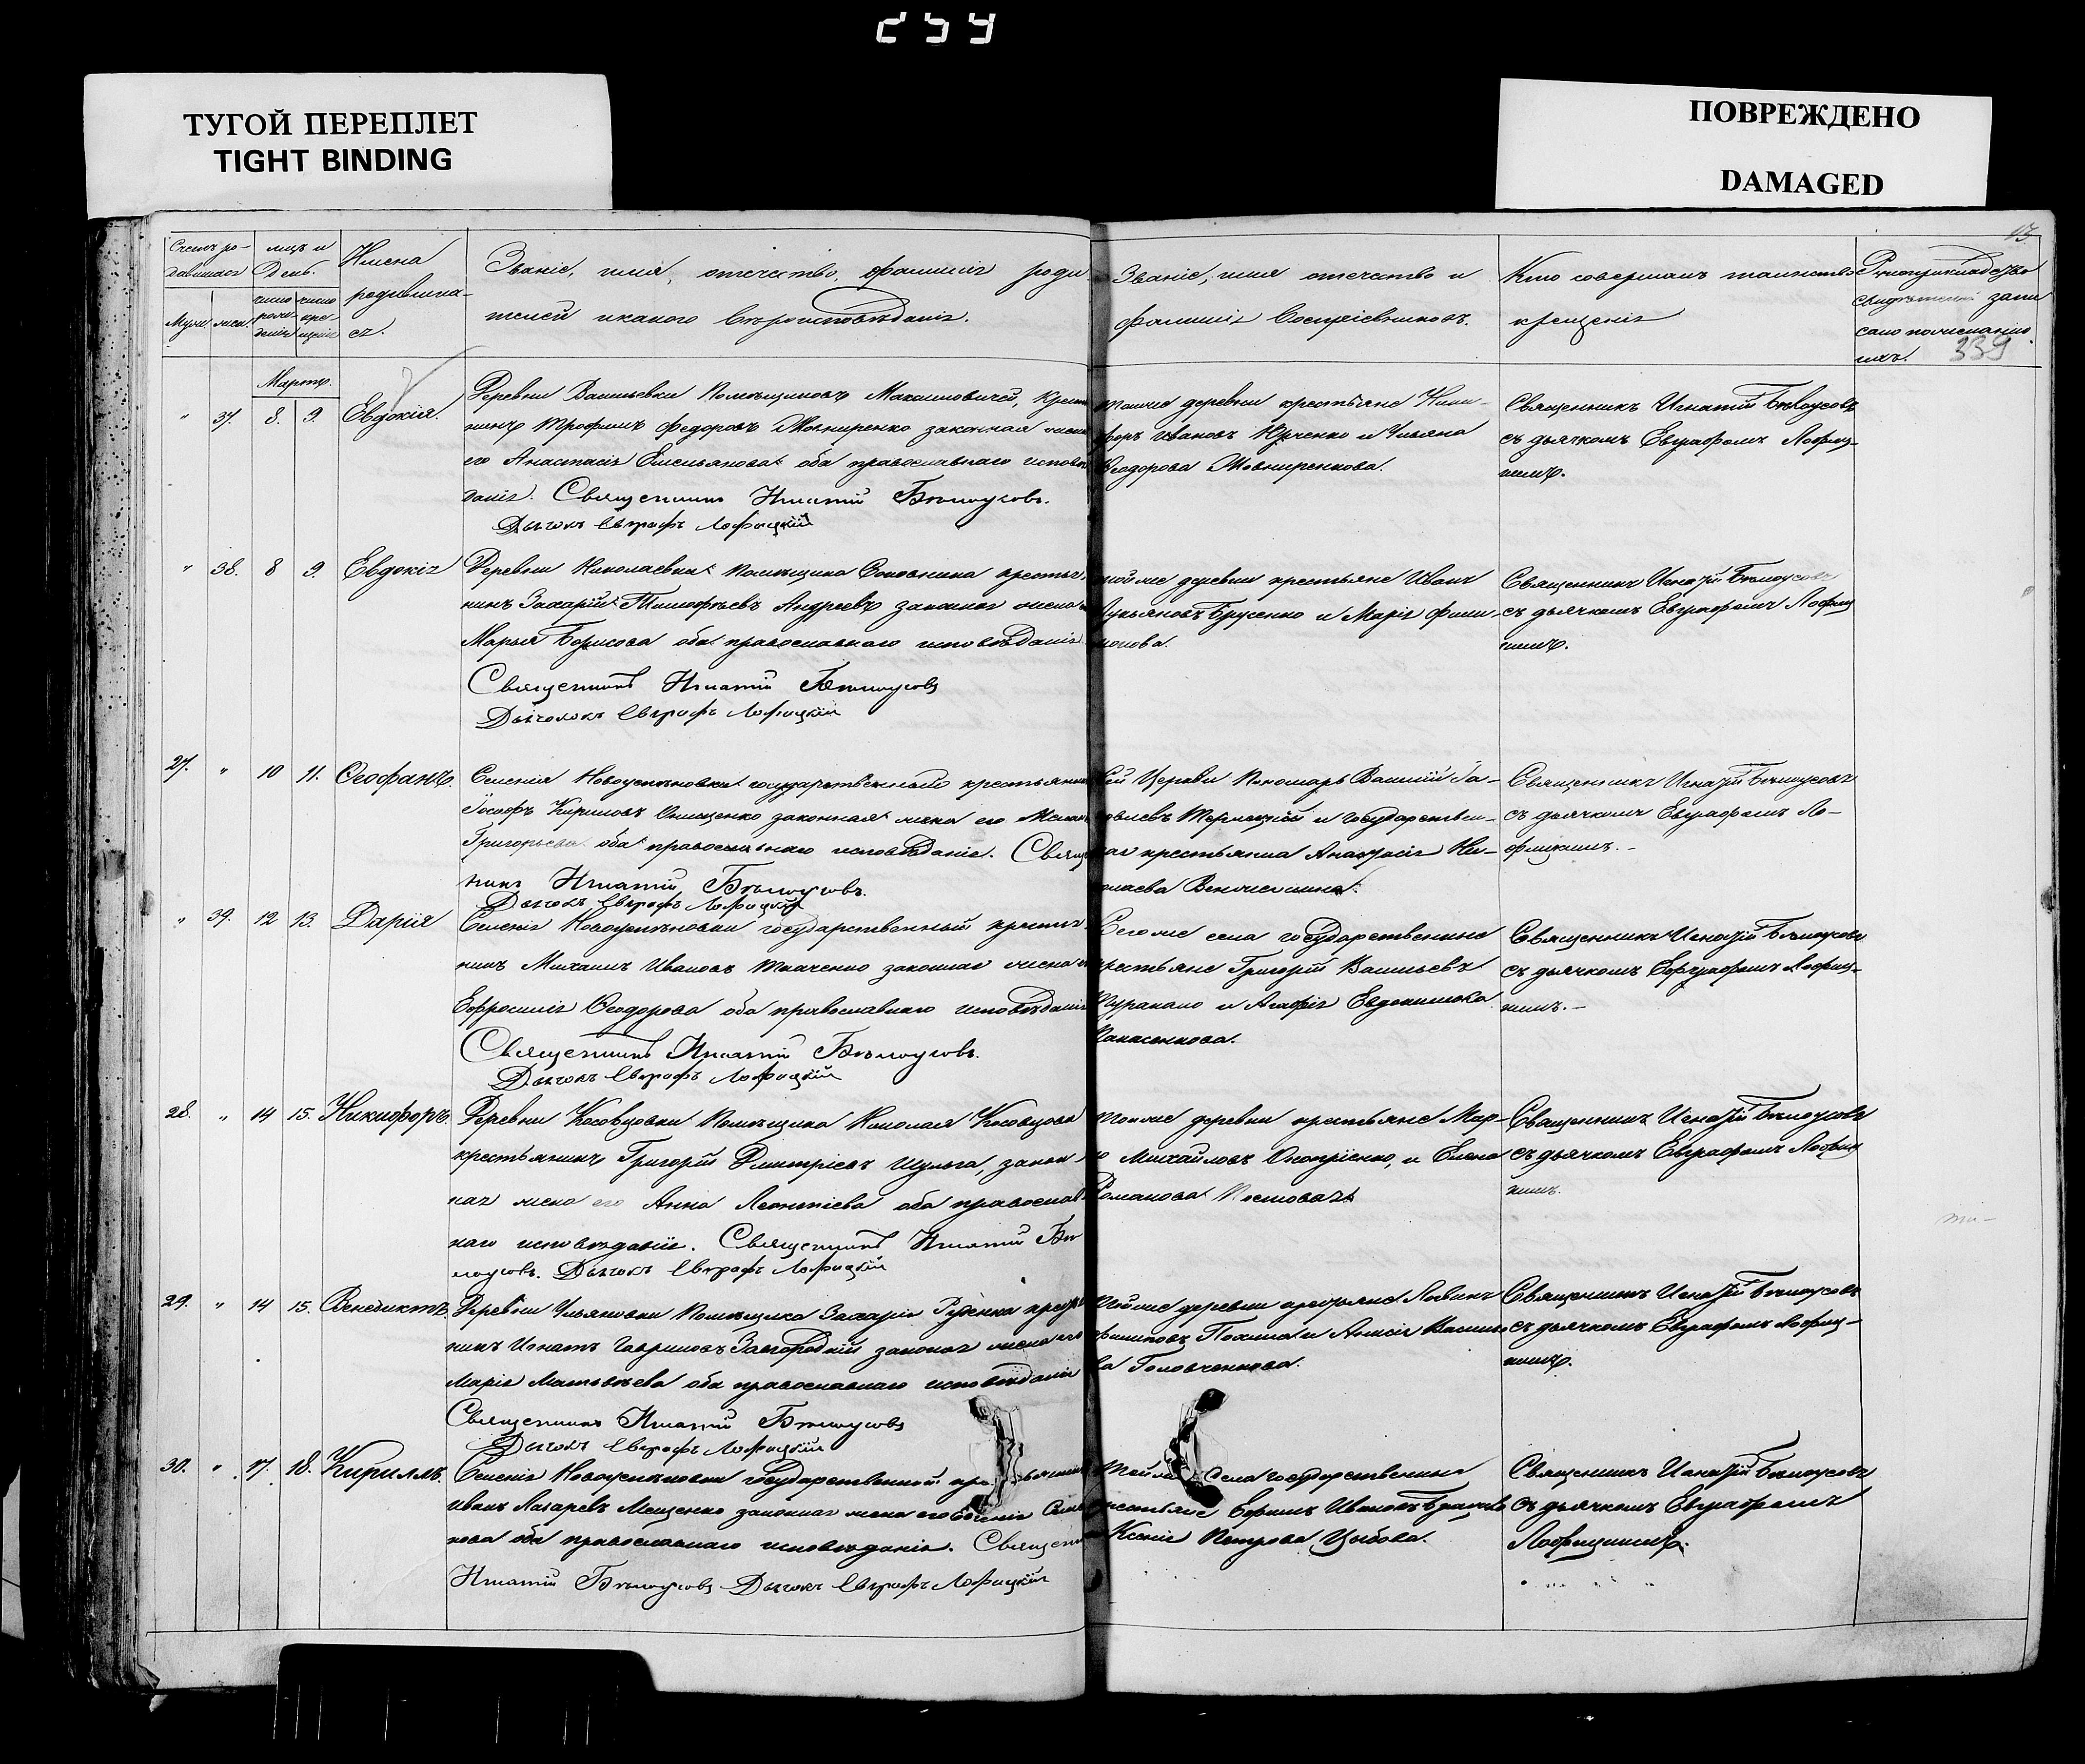 259
ТУГОЙ ПЕРЕПЛЕТ
TIGHT BINDING
ПОВРЕЖДЕНО
DAMAGED
13
Счетъ ро-
дившихся
Муж. жен.
мцъ и
День.
число рож-
денія
число кре-
щенія
Имена
родивших-
ся.
Званіе, имя, отечество, фамилія роди
телей и какого вѣроисповѣданія.
Званіе, имя отечество и
фамилія воспріемниковъ.
Кто совершалъ таинство
крещенія
Рукоприкладство
свидѣтелей запи
сано по желанію
ихъ.
339
Мартъ.
" 37. 8. 9. Евдокія.
Деревни Васильевки Помѣщиковъ Максимовичей, крестья
нинъ Трофимъ Федоровъ Жовниренко законная жена
его Анастасія Емельянова оба православнаго исповѣ
данія. Священникъ Игнатій Бѣлоусовъ.
Дьячокъ Евграфъ Лофицкій
тойже деревни крестьяне Ники-
форъ Ивановъ Юрченко и Ульяна
Феодорова Жовниренкова.
Священникъ Игнатій Бѣлоусовъ
съ дьячкомъ Евграфомъ Лофиц-
кимъ.
" 38. 8 9. Евдокія
Деревни Николаевки Помѣщика крестья
нинъ Захарій Тимофѣевъ Андреевъ законная жена
Марья Борисова оба православнаго исповѣданія
Священникъ Игнатій Бѣлоусовъ
Дьячокъ Евграфъ Лофицкій
тойже деревни крестьяне Иванъ
Лукьяновъ Брусенко и Марія Фили-
монова.
Священникъ Игнатій Бѣлоусовъ
съ дьячкомъ Евграфомъ Лофиц
кимъ.
27. " 10 11. Ѳеофанъ.
Селенія Новоуспѣновки государственный крестьянинъ
Іосифъ Кириловъ Онищенко законная жена его
Григорьева оба православнаго исповѣданія. Священ
никъ Игнатій Бѣлоусовъ.
Дьячокъ Евграфъ Лофицкій
Сей Церкви Пономарь Василій Іа-
ковлевъ и государствен-
ная крестьянка Анастасія Ни-
колаева
Священникъ Игнатій Бѣлоусовъ
съ дьячкомъ Евграфомъ Ло-
фицкимъ.-
" 39. 12 13. Дарія
Селенія Новоуспѣновки государственный крестья
нинъ Михаилъ Ивановъ Ткаченко законная жена
Евфросинія Ѳеодорова оба православнаго исповѣданія
Священникъ Игнатій Бѣлоусовъ.
Дьячокъ Евграфъ Лофицкій
Сегоже села государственные
крестьяне Григорій Васильевъ
и Агафія Евдокимова
Панасенкова.
Священникъ Игнатій Бѣлоусовъ
съ дьячкомъ Евграфомъ Лофиц-
кимъ.-
28. " 14 15. Никифоръ.
Деревни Косовцовки Помѣщика Николая Косовцова
крестьянинъ Григорій Дмитріевъ Шульга, закон
ная жена его Анна Леонтіева оба православ
наго исповѣданія. Священникъ Игнатій Бѣ
лоусовъ. Дьячокъ Евграфъ Лофицкій
тойже деревни крестьяне Мар-
ко Михайловъ Оноприенко, и Елена
Романова
Священникъ Игнатій Бѣлоусовъ
съ дьячкомъ Евграфомъ Лофиц
кимъ.
29. " 14 15. Венедиктъ.
Деревни Ульяновки Помѣщика Захарія Руденка крестья
нинъ Игнатъ Гавриловъ Завгородній законная жена его
Марія Матвѣева оба православнаго исповѣданія
Священникъ Игнатій Бѣлоусовъ
Дьячокъ Евграфъ Лофицкій
тойже деревни крестьяне Логвинъ
Филиповъ и Анисія Василье
ва Головченкова.
Священникъ Игнатій Бѣлоусовъ
съ дьячкомъ Евграфомъ Лофиц-
кимъ.
30. " 17. 18. Кириллъ.
Селенія Новоуспѣновки государственной крестьянинъ
Иванъ Лазаревъ Мещенко законная жена его
нова оба православнаго исповѣданія. Священникъ
Игнатій Бѣлоусовъ Дьячокъ Евграфъ Лофицкій
тойже села государственные
крестьяне Ефимъ Ивановъ
Ксенія Петрова Цыбова.
Священникъ Игнатій Бѣлоусовъ
съ дьячкомъ Евграфомъ
Лофицкимъ.